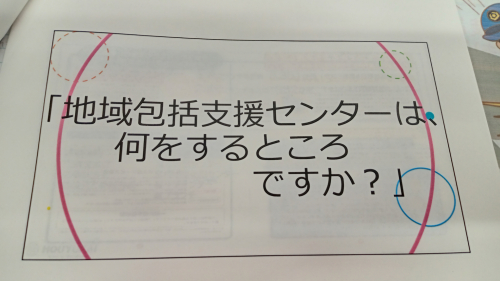 「地域包括支援センターは、
何をするところ
ですか？」